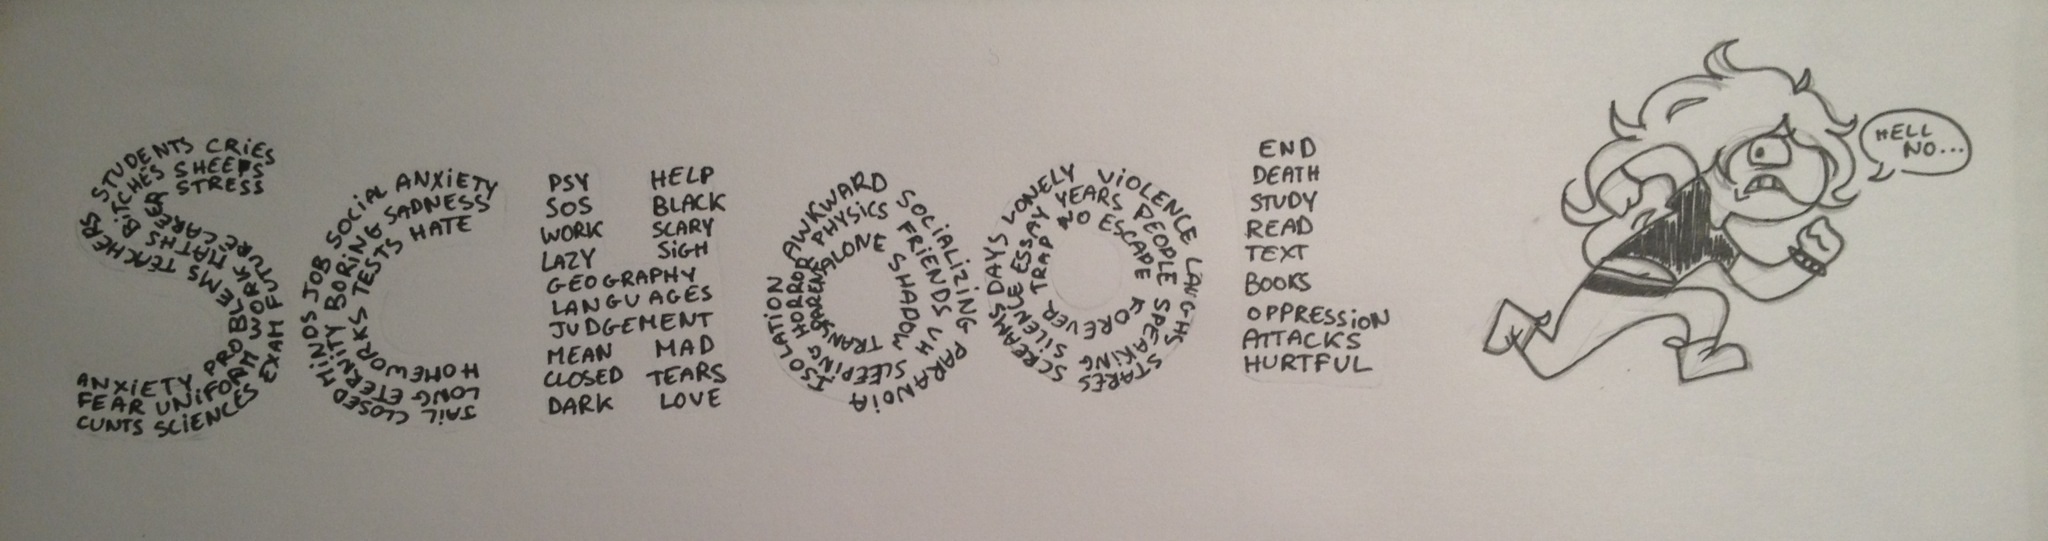 STUDENTS CRiES
BiTCHES SHEEPS
CAREER STRESS
TEACHERS
MATHS
FUTURE
PROBLEMS
WORK
EXAM
ANXiETY
FEAR UNiFORM
CUNTS SCiENCES
MiNDS JOB SOCiAL ANXiETY
ETERNiTY BORiNG SADNESS
HOMEWORKS TESTS HATE
LONG
JAiL CLOSED
PSY HELP
SOS BLACK
WORK SCARY
LAZY SiGH
GEOGRAPHY
LANGUAGES
JUDGEMENT
MEAN MAD
CLOSED TEARS
DARK LOVE
ISOLATiON AWKWARD SOCiALiZiNG PARANOiA
HORROR PHYSiCS FRiENDS
SLEEPiNG
TRANSPARENT ALONE SHADOW
SCREAMS DAYS LONELY ViOLENCE LAUGHS STARES
SiLENCE ESSAY YEARS PEOPLE SPEAKiNG
TRAP NO ESCAPE FOREVER
END
DEATH
STUDY
READ
TEXT
BOOKS
OPPRESSiON
ATTACKS
HURTFUL
HELL
NO...